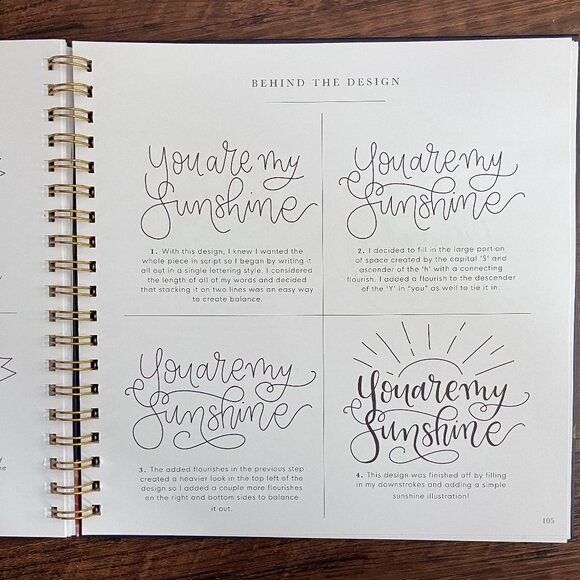 BEHIND THE DESIGN
You are my
Sunshine
1. With this design, I knew I wanted the
whole piece in script so I began by writing it
all out in a single lettering style. I considered
the length of all of my words and decided
that stacking it on two lines was an easy way
to create balance.
You are my
Sunshine
2. I decided to fill in the large portion
of space created by the capital 'S' and
ascender of the 'h' with a connecting
flourish. I added a flourish to the descender
of the 'Y' in "you" as well to tie it in.
You are my
Sunshine
3. The added flourishes in the previous step
created a heavier look in the top left of the
design so I added a couple more flourishes
on the right and bottom sides to balance
it out.
You are my
Sunshine
4. This design was finished off by filling
in my downstrokes and adding a simple
sunshine illustration!
105